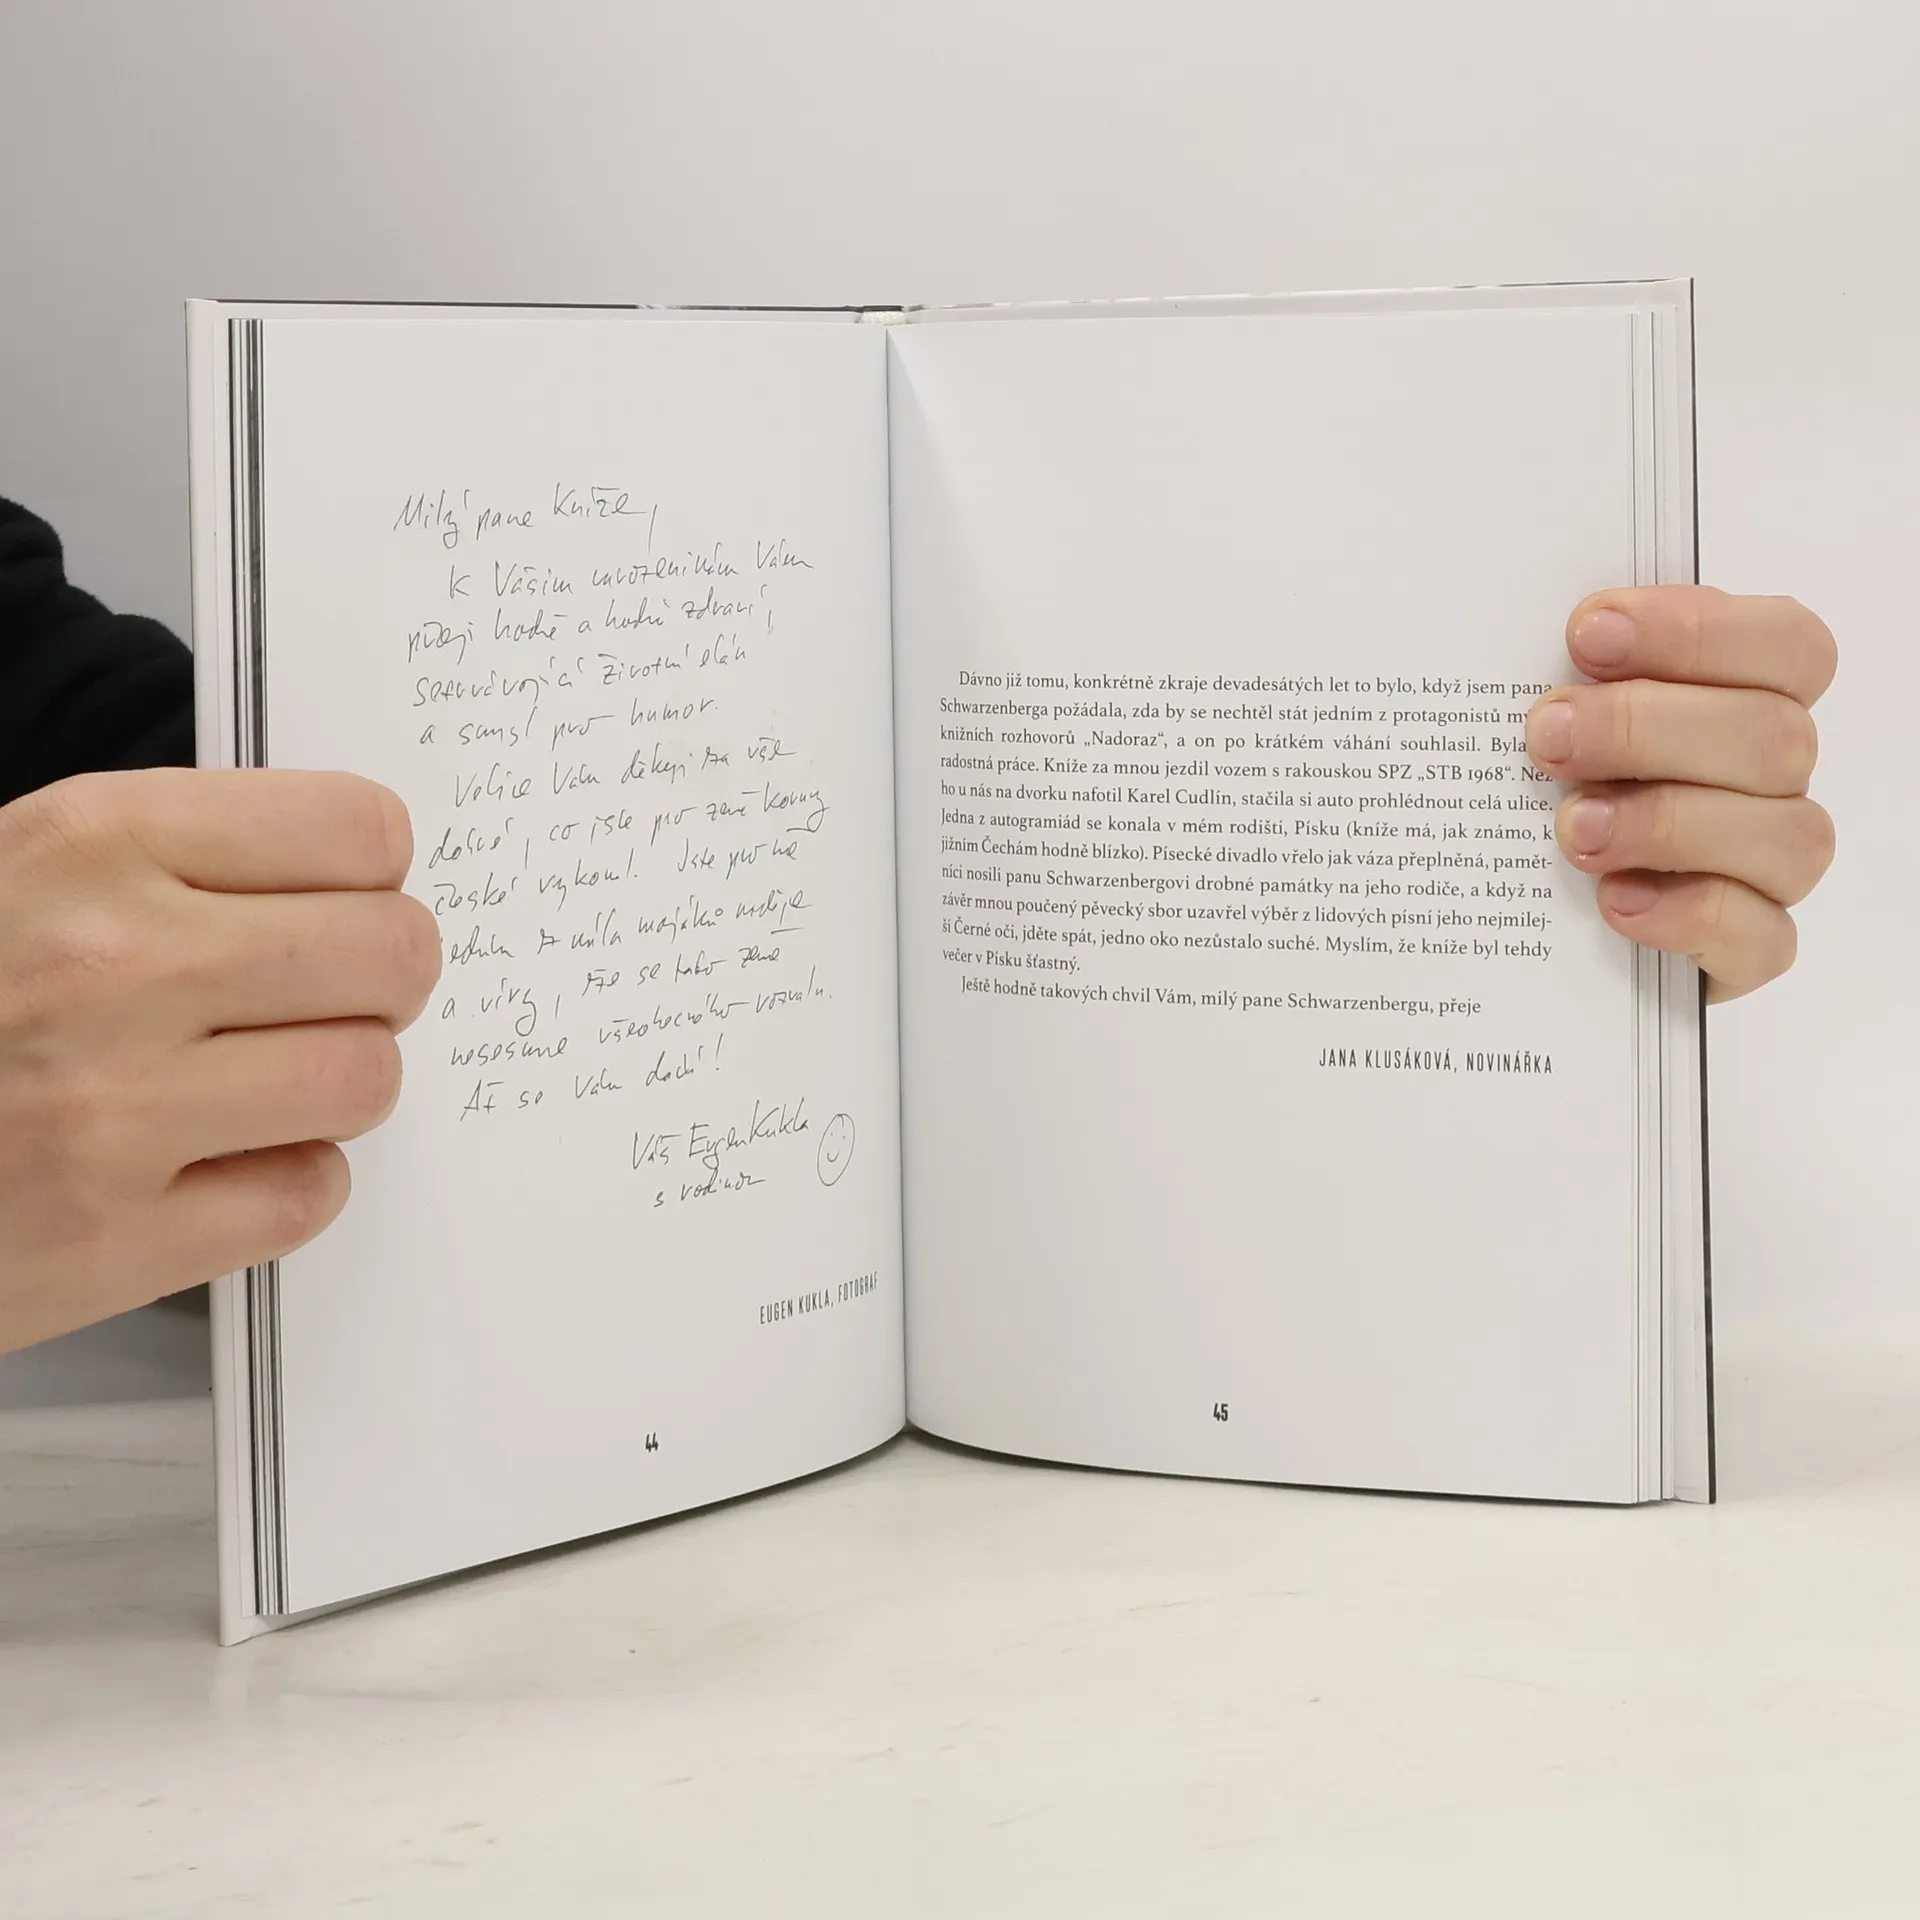 Milý pane Kníže,
K Vašim narozeninám Vám
přeji hodně a hodně zdraví,
setrvávající životní elán
a smysl pro humor.
Velice Vám děkuji za vše
dobré, co jste pro země Koruny
české vykonal. Jste pro mě
jedním z mála majáků naděje
a víry, že se tato země
nesesune všeobecného rozvalu.
Ať se Vám daří!
Váš Eugen Kukla
s rodinou
EUGEN KUKLA, FOTOGRAF
44
Dávno již tomu, konkrétně zkraje devadesátých let to bylo, když jsem pana
Schwarzenberga požádala, zda by se nechtěl stát jedním z protagonistů
knižních rozhovorů „Nadoraz“, a on po krátkém váhání souhlasil. Byla
radostná práce. Kníže za mnou jezdil vozem s rakouskou SPZ „STB 1968“. Než
ho u nás na dvorku nafotil Karel Cudlín, stačila si auto prohlédnout celá ulice.
Jedna z autogramiád se konala v mém rodišti, Písku (kníže má, jak známo, k
jižním Čechám hodně blízko). Písecké divadlo vřelo jak váza přeplněná, pamět-
níci nosili panu Schwarzenbergovi drobné památky na jeho rodiče, a když na
závěr mnou poučený pěvecký sbor uzavřel výběr z lidových písní jeho nejmilej-
ší Černé oči, jděte spát, jedno oko nezůstalo suché. Myslím, že kníže byl tehdy
večer v Písku šťastný.
Ještě hodně takových chvil Vám, milý pane Schwarzenbergu, přeje
JANA KLUSÁKOVÁ, NOVINÁŘKA
45